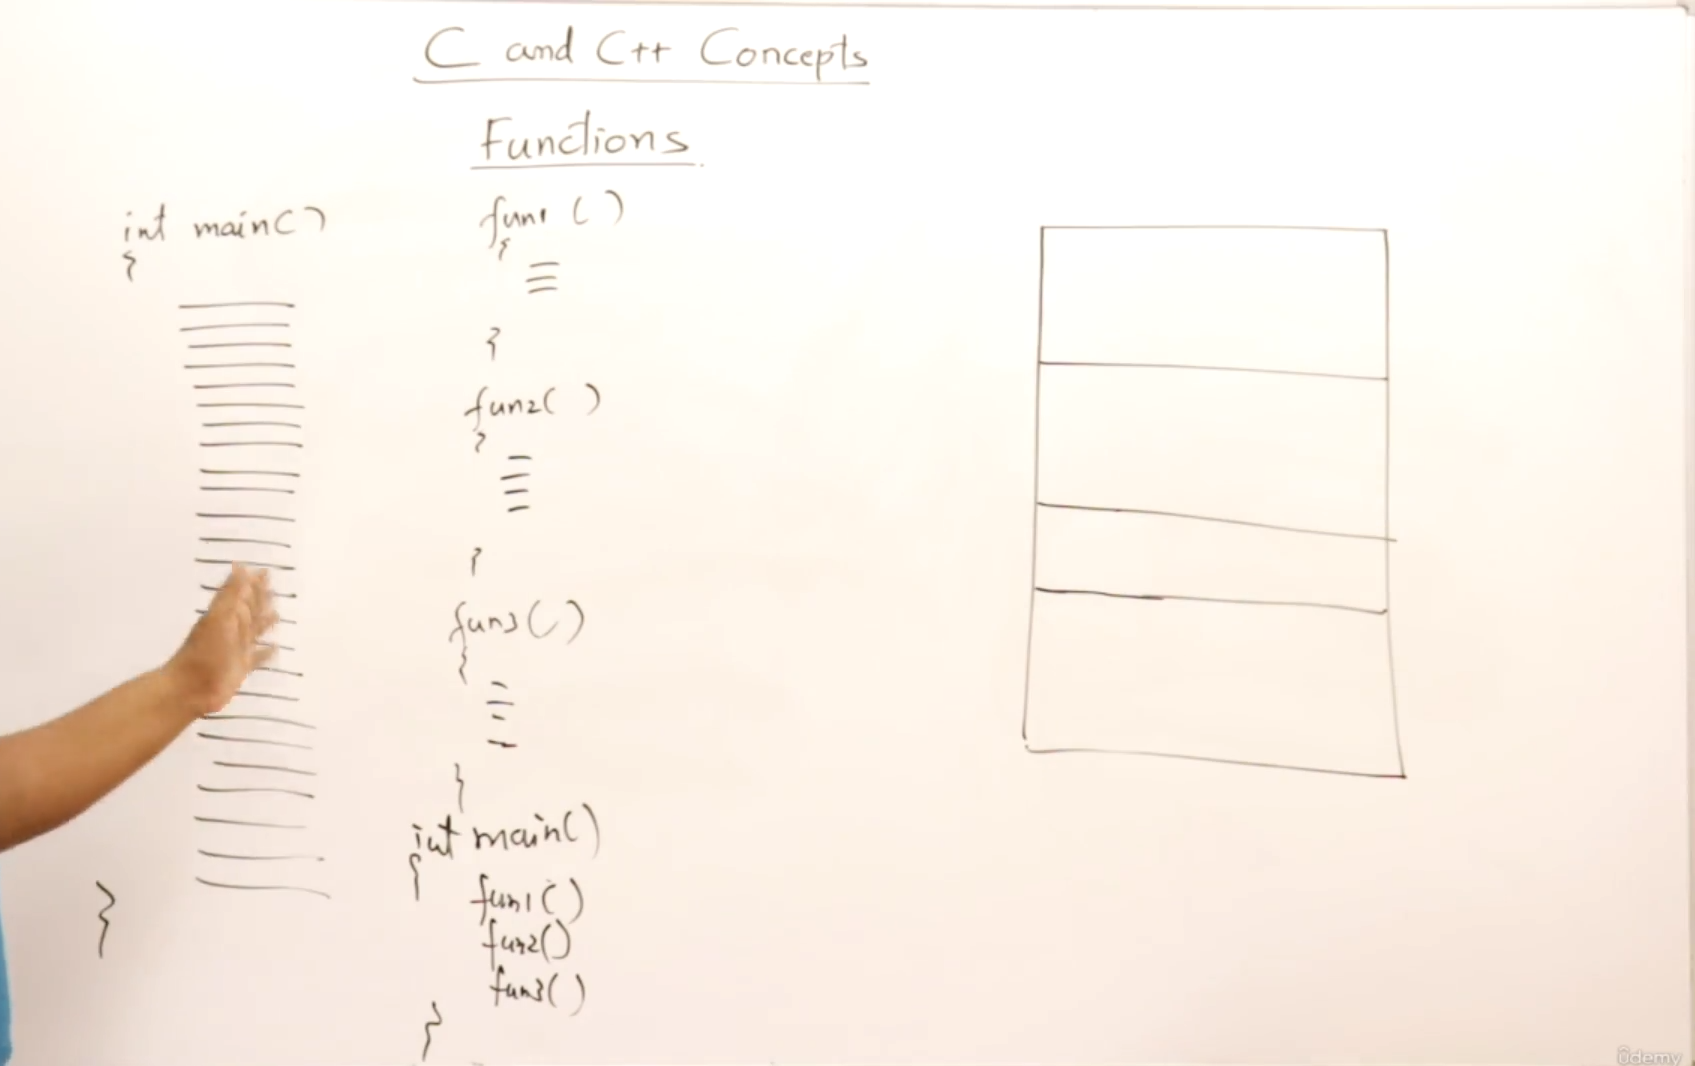 C and C++ Concepts
Functions
int main()
{
}
fun1 ( )
{
}
fun2( )
{
}
fun3( )
{
}
int main()
{
fun1( )
fun2()
fun3( )
}
ûdemy